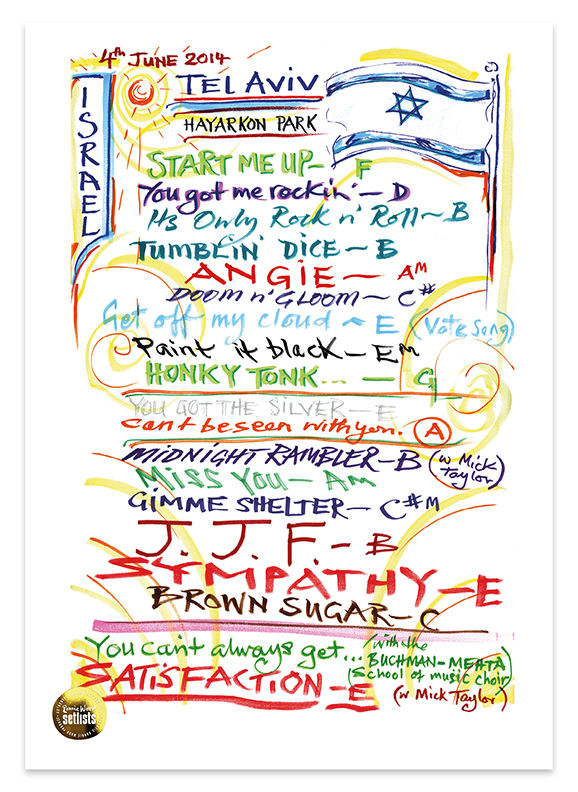 4th JUNE 2014
ISRAEL
TEL AVIV
HAYARKON PARK
START ME UP- F
You got me rockin' - D
It's Only Rock n' Roll ~ B
TUMBLIN' DICE ~ B
ANGIE ~ Am
DOOM n' GLOOM ~ C#
Get off my cloud ~ E (Vote Song)
Paint it black - Em
HONKY TONK... - G
YOU GOT THE SILVER - E
can't be seen with you. (A)
MIDNIGHT RAMBLER - B (w Mick
Taylor)
MISS YOU - Am
GIMME SHELTER - C#m
J. J. F. - B
SYMPATHY - E
BROWN SUGAR - C
You can't always get... (with the
BUCHMAN-MEHTA
School of music choir)
SATISFACTION - E
(w Mick Taylor)
Ronnie Wood
setlists